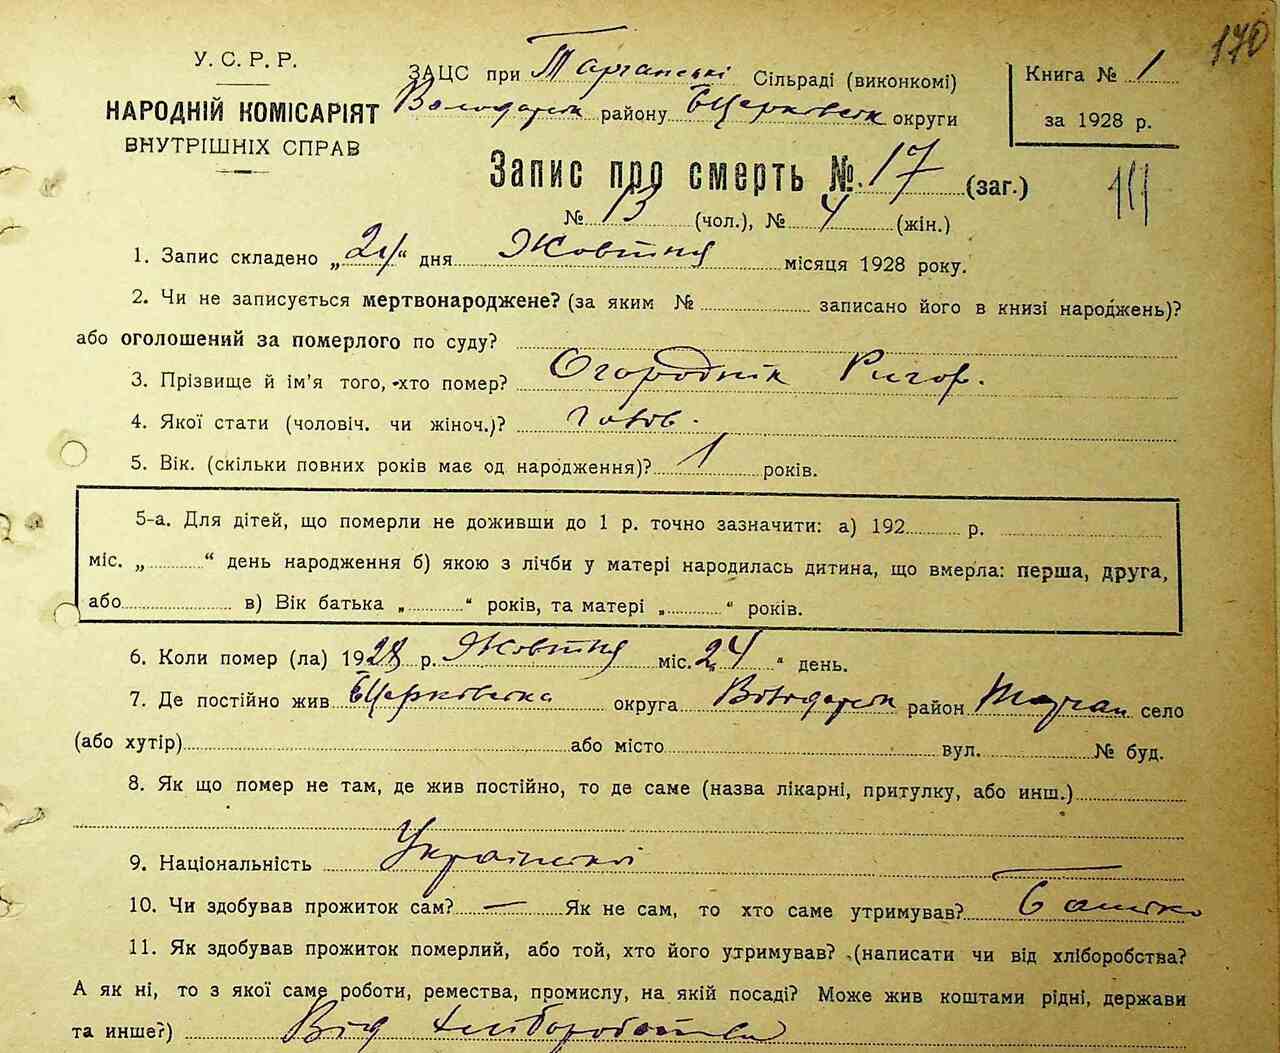 170
У. С. Р. Р.
НАРОДНІЙ КОМІСАРІЯТ
ВНУТРІШНІХ СПРАВ
ЗАЦС при Тарганські Сільраді (виконкомі)
Володарськ району БЦерківськ округи
Книга № 1
за 1928 р.
Запис про смерть №. 17 (заг.)
№ 13 (чол.), № 4 (жін.)
1. Запис складено „24“ дня Жовтня місяця 1928 року.
2. Чи не записується мертвонароджене? (за яким № записано його в книзі народжень)?
або оголошений за померлого по суду?
3. Прізвище й ім'я того, хто помер? Огороднік Ригор.
4. Якої стати (чоловіч. чи жіноч.)?
5. Вік. (скільки повних років має од народження)? 1 років.
5-а. Для дітей, що померли не доживши до 1 р. точно зазначити: а) 192 р.
міс. „ “ день народження б) якою з лічби у матері народилась дитина, що вмерла: перша, друга,
або в) Вік батька „ “ років, та матері „ “ років.
6. Коли помер (ла) 1928 р. Жовтня міс. „24“ день.
7. Де постійно жив БЦерківська округа Володарськ район Тарган село
(або хутір) або місто вул. № буд.
8. Як що помер не там, де жив постійно, то де саме (назва лікарні, притулку, або инш.)
9. Національність Українській
10. Чи здобував прожиток сам? — Як не сам, то хто саме утримував? Батько
11. Як здобував прожиток померлий, або той, хто його утримував? (написати чи від хліборобства?
А як ні, то з якої саме роботи, ремества, промислу, на якій посаді? Може жив коштами рідні, держави
та инше?) Від хліборобства